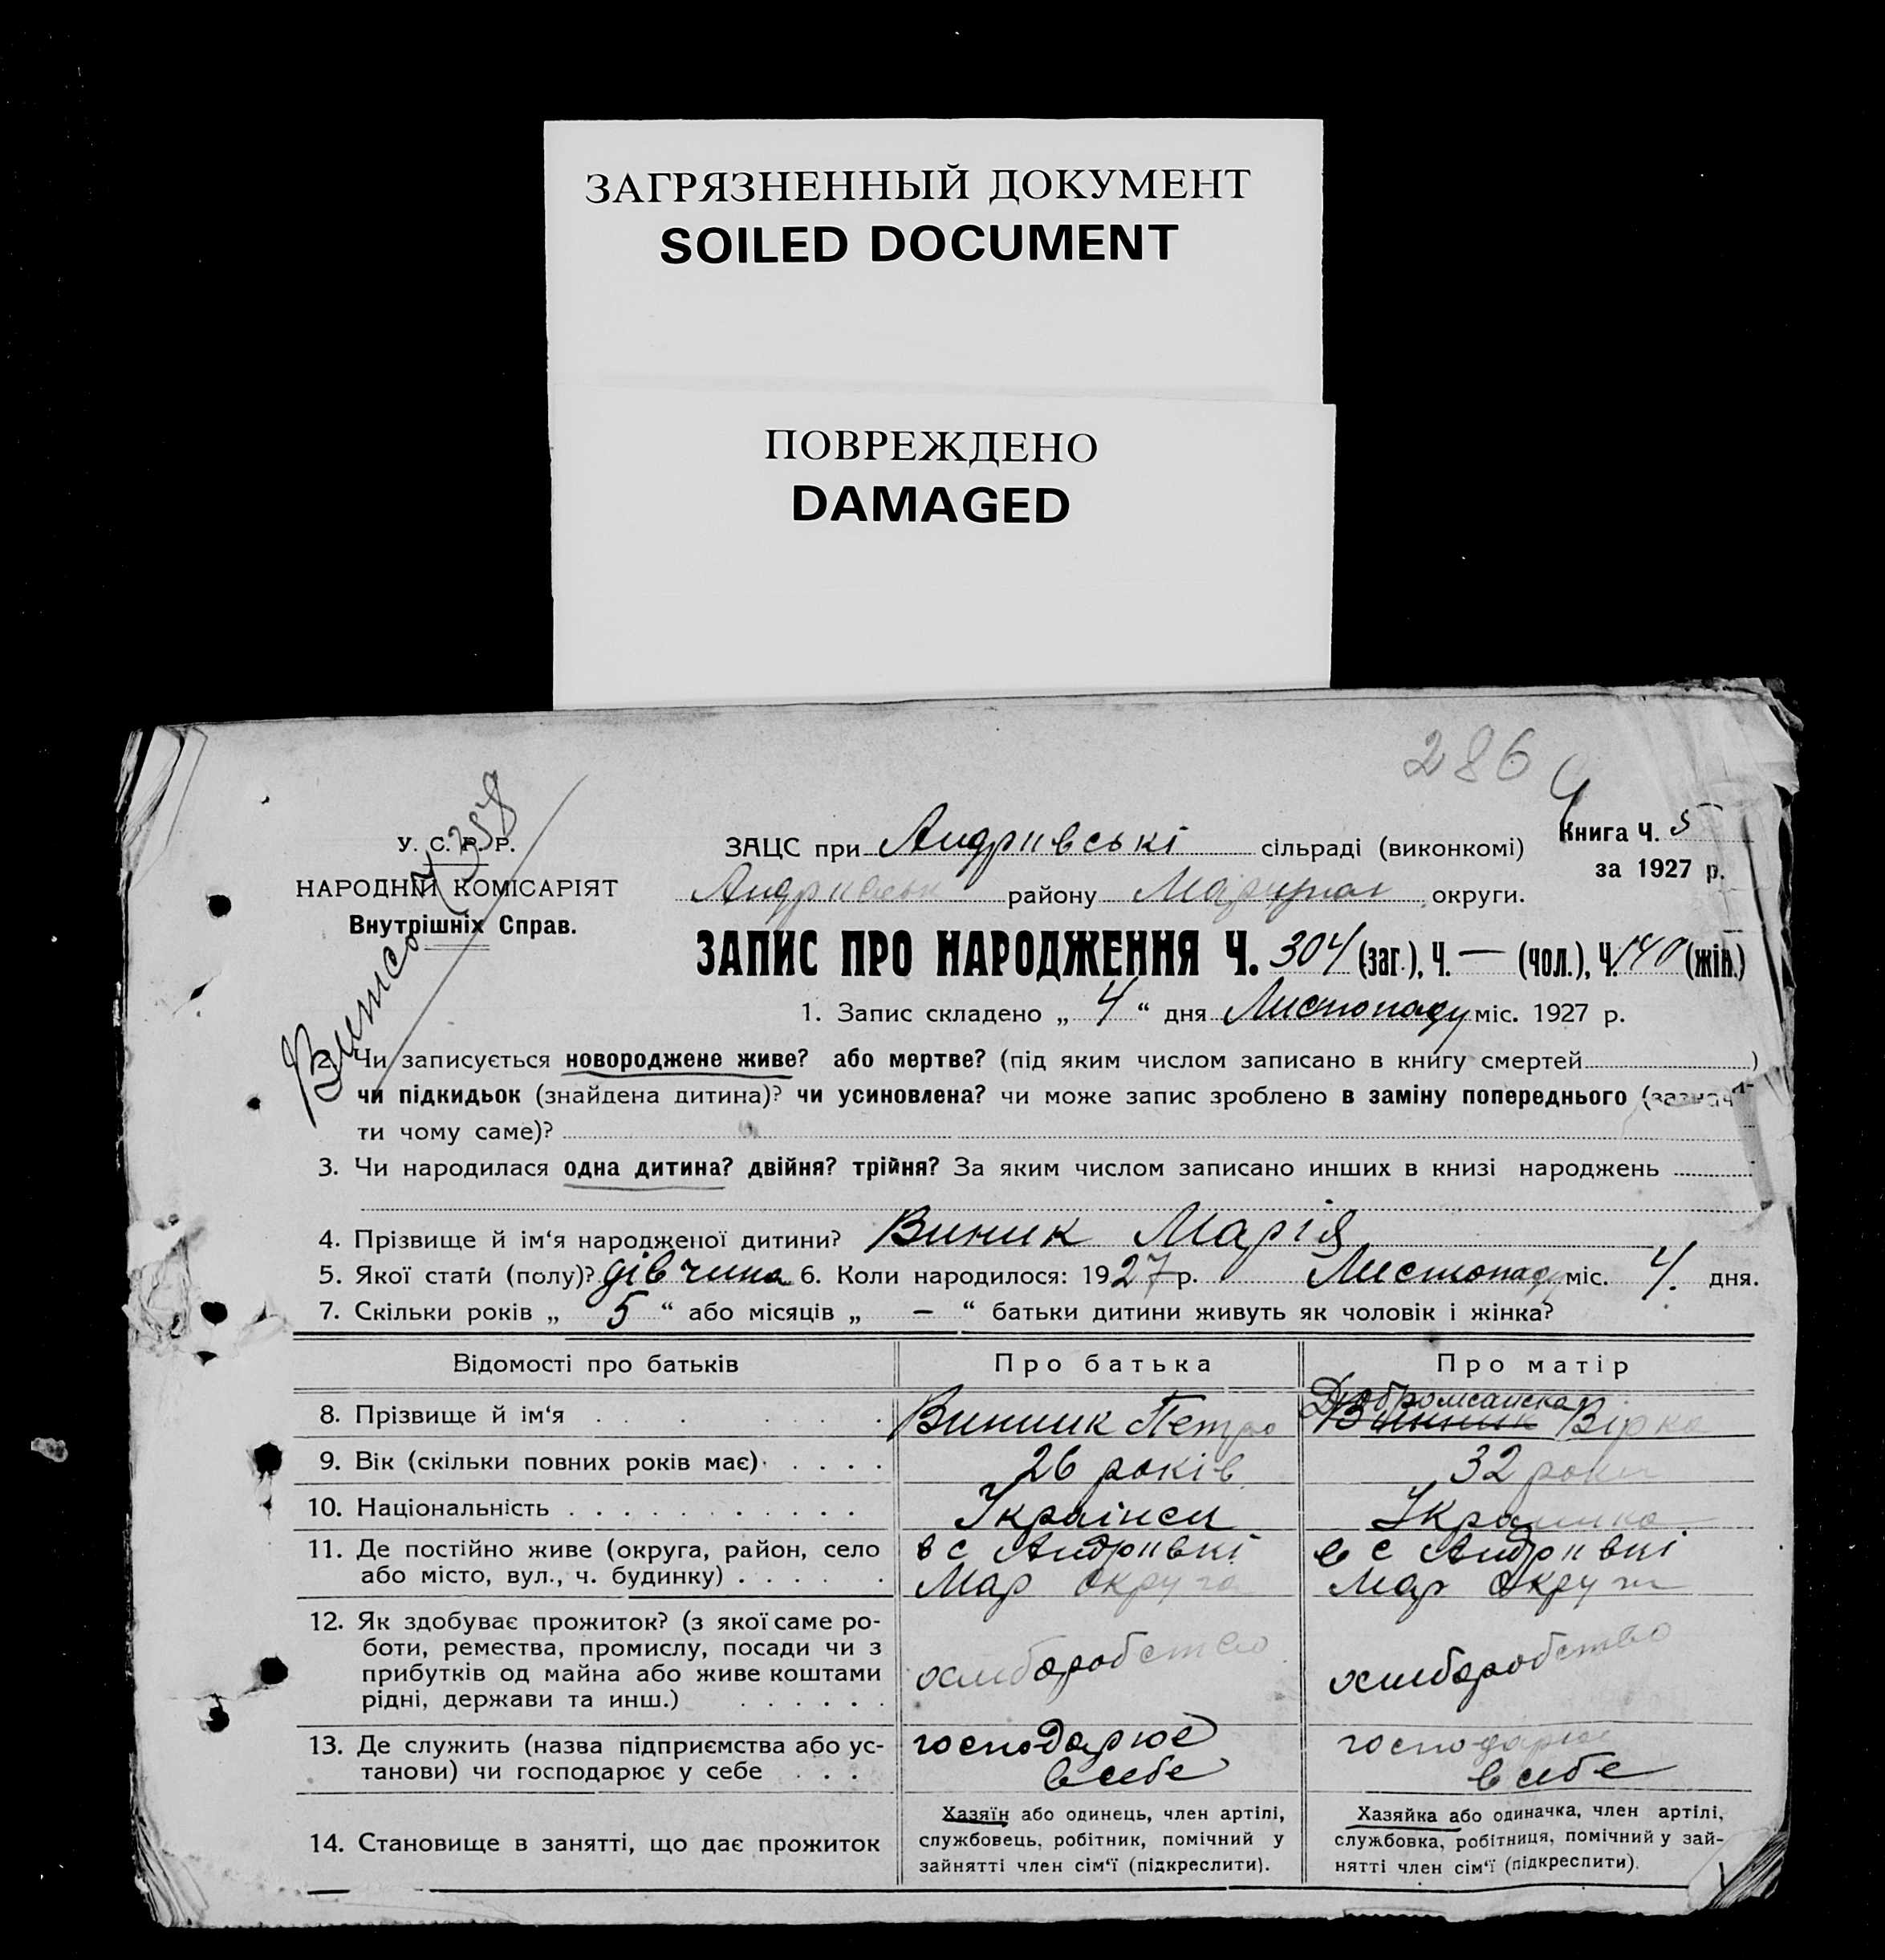 ЗАГРЯЗНЕННЫЙ ДОКУМЕНТ
SOILED DOCUMENT
ПОВРЕЖДЕНО
DAMAGED
286
У. С. Р. Р.
НАРОДНІЙ КОМІСАРІЯТ
Внутрішніх Справ.
ЗАЦС при Андріївські сільраді (виконкомі)
Книга Ч. 5
за 1927 р.
району Маріупол округи.
ЗАПИС ПРО НАРОДЖЕННЯ Ч. 304 (заг.), Ч. — (чол.), Ч. 140 (жін.)
1. Запис складено „ 4 “ дня Листопаду міс. 1927 р.
2. Чи записується новороджене живе? або мертве? (під яким числом записано в книгу смертей )
чи підкидьок (знайдена дитина)? чи усиновлена? чи може запис зроблено в заміну попереднього (зазначи-
ти чому саме)?
3. Чи народилася одна дитина? двійня? трійня? За яким числом записано инших в книзі народжень
4. Прізвище й ім‘я народженої дитини? Виник Марія
5. Якої стати (полу)? дівчина 6. Коли народилося: 1927 р. Листопаду міс. 4. дня.
7. Скільки років „ 5 “ або місяців „ — “ батьки дитини живуть як чоловік і жінка?
Відомості про батьків Про батька Про матір
8. Прізвище й ім‘я Винник Петро Винник Вірка
9. Вік (скільки повних років має) 26 років 32 роки
10. Національність Українец Українка
11. Де постійно живе (округа, район, село в с Андріївкі в с Андріївкі
або місто, вул., ч. будинку) Мар округа Мар округи
12. Як здобуває прожиток? (з якої саме ро-
боти, ремества, промислу, посади чи з
прибутків од майна або живе коштами хлиборобство хлиборобство
рідні, держави та инш.)
13. Де служить (назва підприємства або ус- господарює господарює
танови) чи господарює у себе в себе в себе
14. Становище в занятті, що дає прожиток
Хазяїн або одинець, член артілі,
службовець, робітник, помічний у
зайнятті член сім‘ї (підкреслити).
Хазяйка або одиначка, член артілі,
службовка, робітниця, помічний у зай-
нятті член сім‘ї (підкреслити).